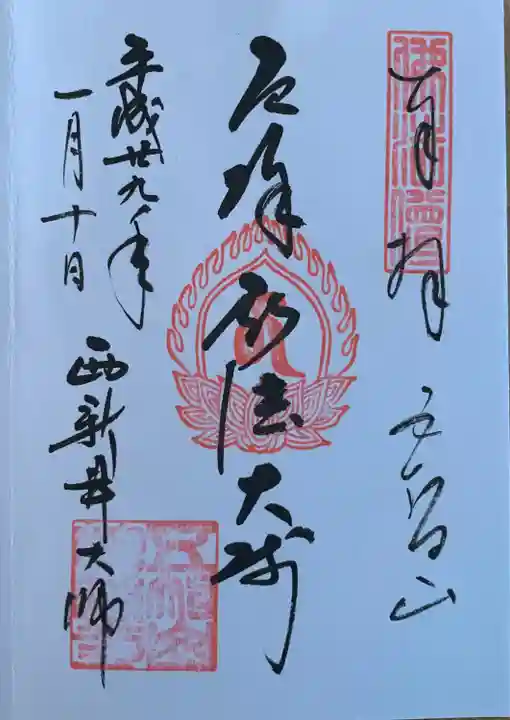 奉拝 五智山
厄除弘法大師
平成廿九年
一月十日
西新井大師